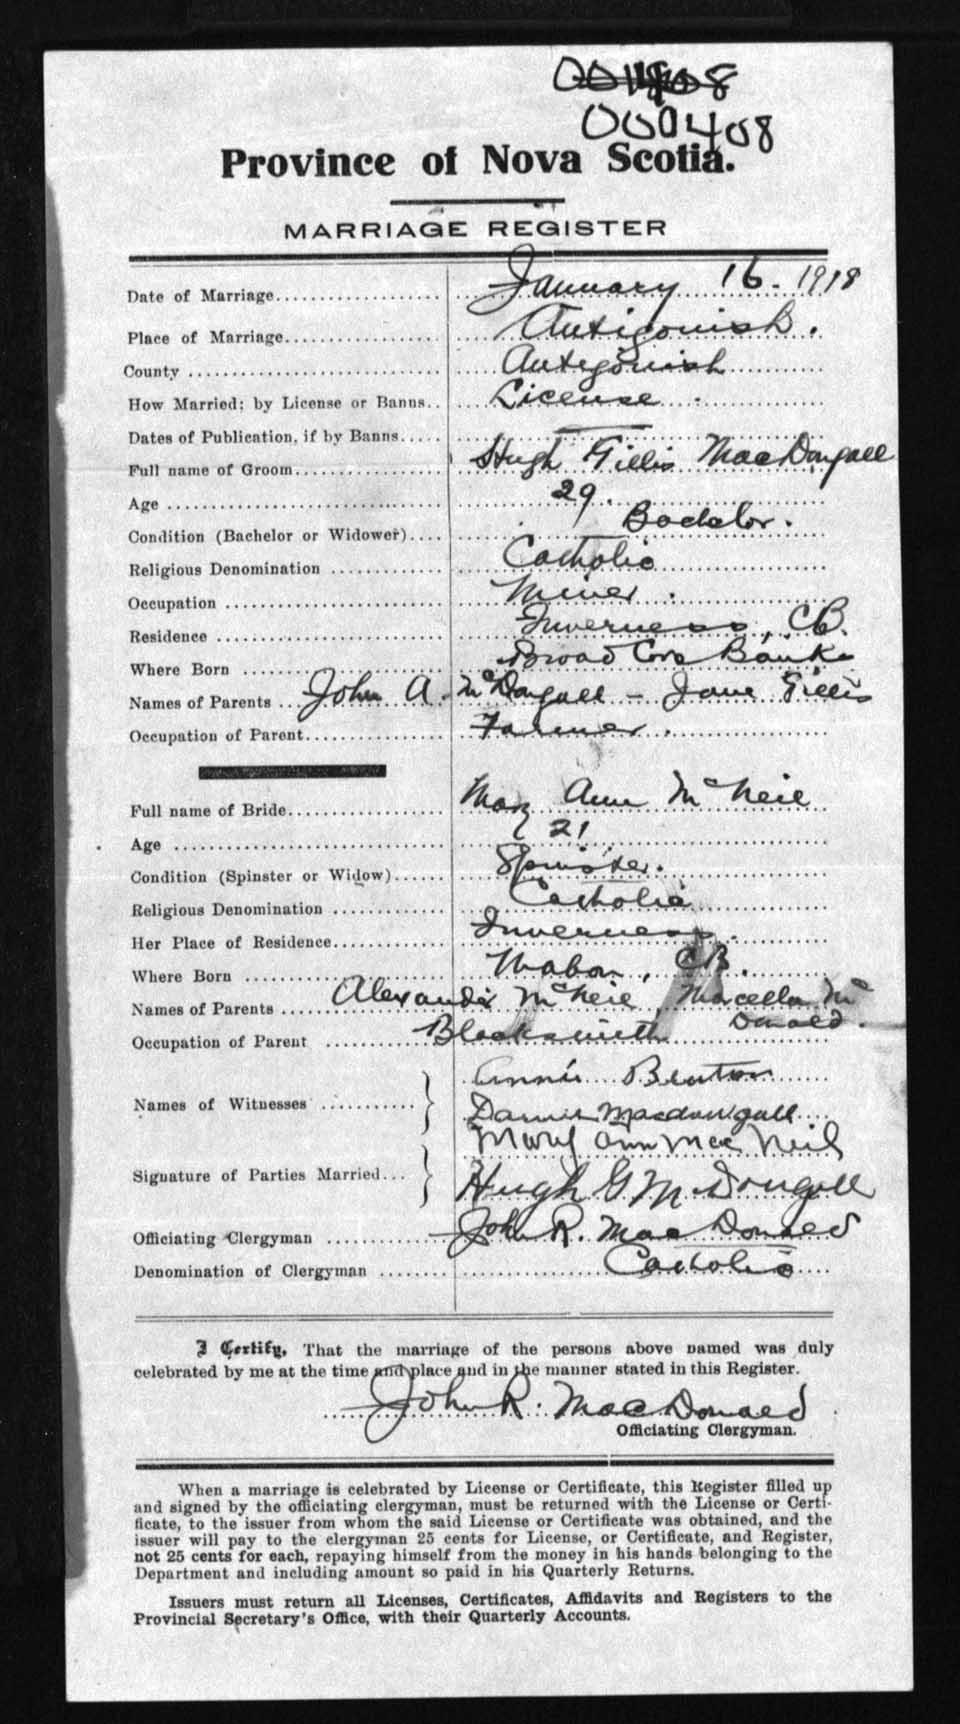 000408
Province of Nova Scotia.
MARRIAGE REGISTER
Date of Marriage.................... January 16. 1918
Place of Marriage................... Antigonish.
County .............................. Antigonish
How Married: by License or Banns.. License
Dates of Publication, if by Banns..... —
Full name of Groom.................. Hugh Gillis MacDougall
Age .............................. 29.
Condition (Bachelor or Widower).... Bachelor.
Religious Denomination ............. Catholic
Occupation ......................... Miner.
Residence .......................... Inverness, CB.
Where Born ....................... Broad Cove Banks
Names of Parents ... John A. McDougall - Jane Gillis
Occupation of Parent................ Farmer.
Full name of Bride................... Mary Ann McNeil
Age .............................. 21
Condition (Spinster or Widow)...... Spinster.
Religious Denomination ............. Catholic
Her Place of Residence............. Inverness.
Where Born ....................... Mabou, CB.
Names of Parents ... Alexander McNeil, Marcella Mc
Donald.
Occupation of Parent ............ Blacksmith
Annie Benton
Names of Witnesses ...........
Macdougall
Mary Ann MacNeil
Signature of Parties Married...
Hugh G McDougall
Officiating Clergyman ............ John R. MacDonald
Denomination of Clergyman ........ Catholic
I Certify, That the marriage of the persons above named was duly
celebrated by me at the time and place and in the manner stated in this Register.
John R. MacDonald
Officiating Clergyman.
When a marriage is celebrated by License or Certificate, this Register filled up
and signed by the officiating clergyman, must be returned with the License or Certi-
ficate, to the issuer from whom the said License or Certificate was obtained, and the
issuer will pay to the clergyman 25 cents for License, or Certificate, and Register,
not 25 cents for each, repaying himself from the money in his hands belonging to the
Department and including amount so paid in his Quarterly Returns.
Issuers must return all Licenses, Certificates, Affidavits and Registers to the
Provincial Secretary's Office, with their Quarterly Accounts.